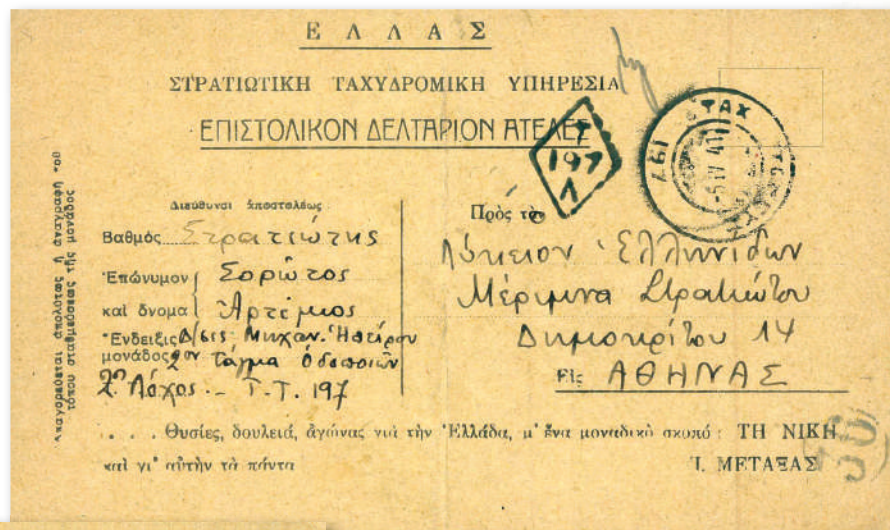 ΕΛΛΑΣ
ΣΤΡΑΤΙΩΤΙΚΗ ΤΑΧΥΔΡΟΜΙΚΗ ΥΠΗΡΕΣΙΑ
ΕΠΙΣΤΟΛΙΚΟΝ ΔΕΛΤΑΡΙΟΝ ΑΤΕΛΕΣ
197
1
ΤΑΧ
197
5 IV 41
Ἀπαγορεύεται ἀπολύτως ἡ ἀναγραφὴ τοῦ
τόπου σταθμεύσεως τῆς μονάδος
Διεύθυνσι ἀποστολέως
Βαθμός Στρατιώτης
Ἐπώνυμον Σορώτος
καὶ ὄνομα Ἀρτέμιος
Ἔνδειξις Δ/σεις Μηχαν. Ἠπείρου
μονάδος 2ον Τάγμα Ὁδοποιῶν
2ος Λόχος - Τ.Τ. 197
Πρὸς τὸ
Λύκειον Ἑλληνίδων
Μέριμνα Στρατιώτου
Δημοκρίτου 14
Εἰς ΑΘΗΝΑΣ
. . . . Θυσίες, δουλειά, ἀγώνας γιὰ τὴν Ἑλλάδα, μ' ἕνα μοναδικὸ σκοπό : ΤΗ ΝΙΚΗ
καὶ γι' αὐτὴν τὰ πάντα
Ι. ΜΕΤΑΞΑΣ